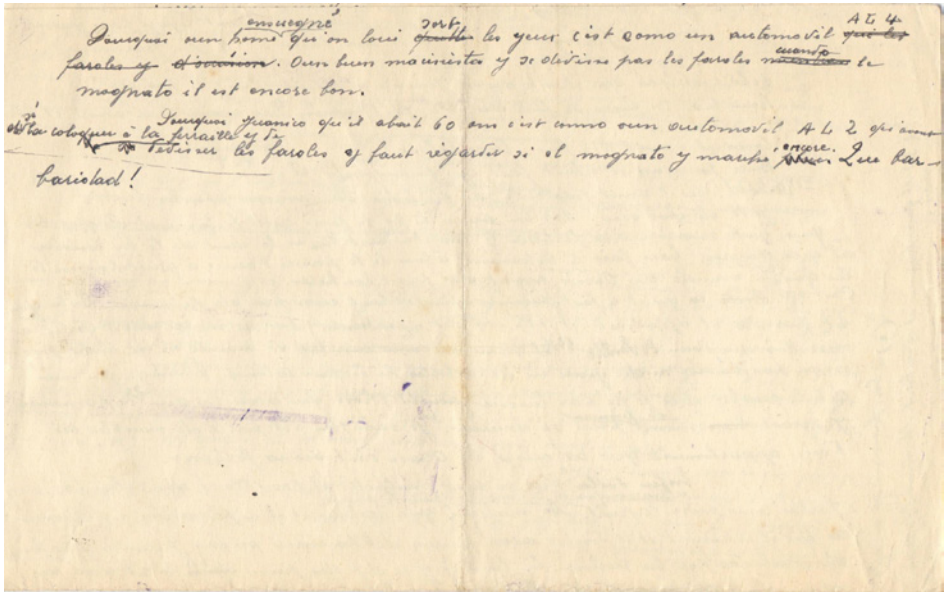 ensuegné sort A L 4
Pourquoi oun homé qu'on loui quitte les yeux c'est como un automovil qui les
faroles y d'ocasion. Oun bun macanista y se dévisse pas les faroles cuando le
magnato il est encore bon.
Pourquoi Juanico qu'il abait 60 ans c'est como oun automovil A L 2 qui
la coloquer à la ferraille y de dévisser les faroles y faut régarder si el magnato y marche encore. Que bar-
baridad!